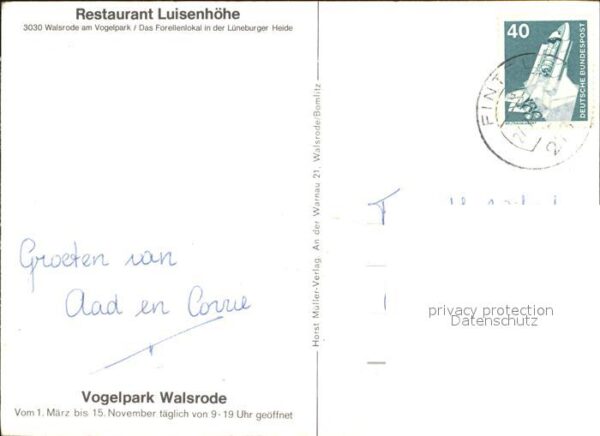 Restaurant Luisenhöhe
3030 Walsrode am Vogelpark / Das Forellenlokal in der Lüneburger Heide
Groeten van
Aad en Corrie
Vogelpark Walsrode
Vom 1. März bis 15. November täglich von 9-19 Uhr geöffnet
Horst Müller-Verlag. An der Warnau 21, Walsrode/Bomlitz
40
DEUTSCHE BUNDESPOST
FINT
privacy protection
Datenschutz